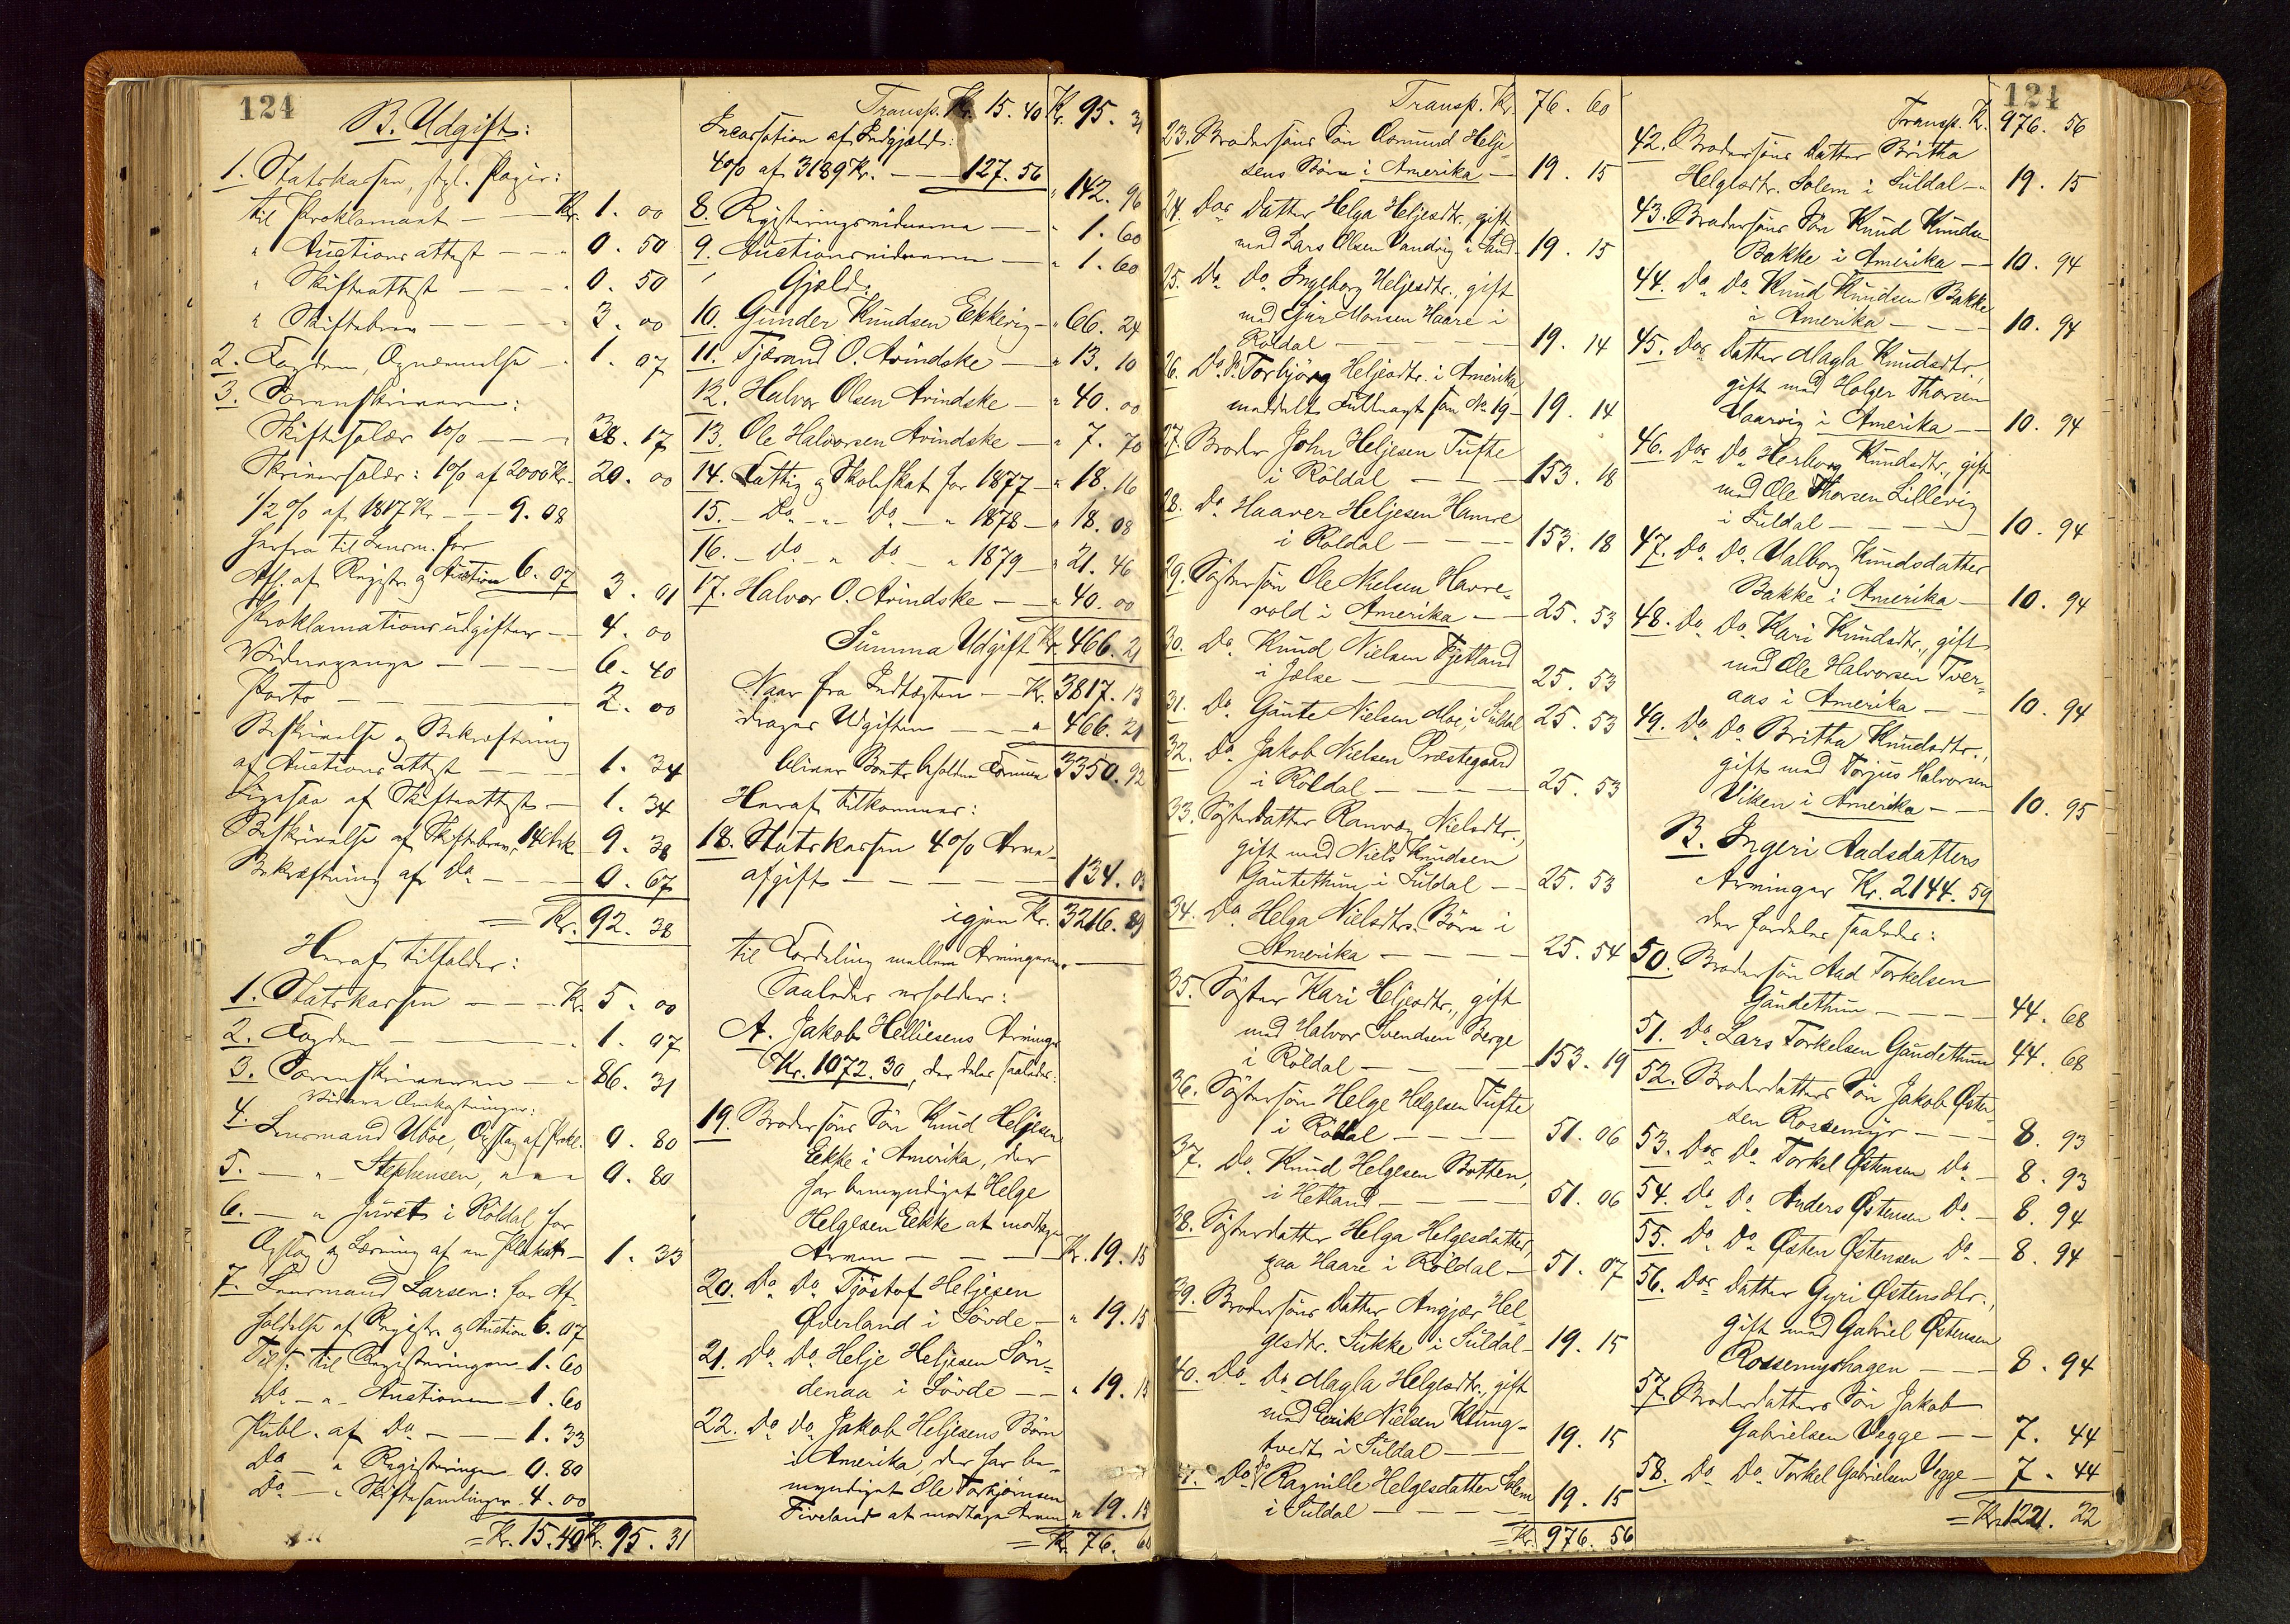 124
B. Udgift:
1. Statskassen, stpl. Papir:
til Proklamaet — Kr. 1. 00
" Auctionsattest — " 0. 50
" Skifteattest — " 0. 50
" Skiftebrev — " 3. 00
2. Fogden, Opnævnelse " 1. 07
3. Sorenskriveren:
Skiftesalær 1% — " 38. 17
Skriversalær: 1% af 2000 Kr. 20. 00
1/2 % af 1817 Kr — 9. 08
herfra til Lensm. for
Afh. af Registr. og Auction 6. 07 3. 01
Proklamationsudgifter — 4. 00
Vidnepenge — 6. 40
Porto — 2. 00
Beskrivelse og Bekræftning
af Auctionsattest — 1. 34
Ligesaa af Skifteattest — 1. 34
Beskrivelse af Skiftebrev, 14 Ark 9. 38
Bekræftning af Do — 0. 67
= Kr. 92. 38
Heraf tilfalder:
1. Statskassen — Kr. 5. 00
2. Fogden — " 1. 07
3. Sorenskriveren — " 86. 31
Videre Omkostninger:
4. Lensmand Uboe, Opslag af Prokl. 0. 80
5. — " — Stephensen, " " " 0. 80
6. — " Juvet i Röldal for
Opslag og Læsning af en Plakat — 1. 33
7. Lensmand Larsen: for Af-
holdelse af Registr. og Auction 6. 07
Tilst. til Registeringen 1. 60
Do — " — Auctionen 1. 60
Publ. af Do — 1. 33
Do — " Registeringen 0. 80
Do — " Skiftesamlinger 4. 00
= Kr. 15. 40 Kr. 95. 31
Transp. Kr. 15. 40 Kr. 95. 31
Incassation af Indgjæld:
4% af 3189 Kr. — 127. 56 " 142. 96
8. Registeringsvidnerne — " 1. 60
9. Auctionsvidnerne — " 1. 60
Gjæld:
10. Gunder Knudsen Ekkevig — " 66. 24
11. Tjærand O. Avindske — " 13. 10
12. Halvor Olsen Avindske — " 40. 00
13. Ole Halvorsen Avindske — " 7. 70
14. Fattig og Skoleskat for 1877 — " 18. 16
15. — Do — " — Do — " 1878 — " 18. 08
16. — Do — " Do — " 1879 — " 21. 46
17. Halvor O. Avindske — " 40. 00
Summa Udgift Kr. 466. 21
Naar fra Indtægten — Kr. 3817. 13
drages Udgiften — " 466. 21
bliver Boets beholdne Formue 3350. 92
Heraf tilkommer:
18. Statskassen 4% Arve-
afgift — 134. 03
igjen Kr. 3216. 89
til Fordeling mellem Arvingerne.
Saaledes erholder:
A. Jakob Helliesens Arvinger
Kr. 1072. 30, der deles saaledes:
19. Brodersöns Sön Knud Heljesen
Ekke i Amerika, der
har bemyndiget Helge
Helgesen Ekke at modtage
Arven — Kr. 19. 15
20. Do Do Tjöstof Heljesen
Överland i Sövde — " 19. 15
21. Do Do Helje Heljesen Sön-
denaa i Sövde — " 19. 15
22. Do Do Jakob Heljesens Börn
i Amerika, der har be-
myndiget Ole Torkjörnsen
Fiveland at modtage Arven " 19. 15
= Kr. 76. 60
Transp. Kr. 76. 60
23. Brodersöns Sön Osmund Helje-
sens Börn i Amerika — 19. 15
24. Dos Datter Helga Heljesdtr., gift
med Lars Olsen Vandvig i Sand — 19. 15
25. Do Do Ingeborg Heljesdtr., gift
med Gjur Monsen Haare i
Röldal — 19. 14
26. Do Do Torbjörg Heljesdtr. i Amerika,
meddelt Fuldmagt som No 19 — 19. 14
27. Broder John Heljesen Tufte
i Röldal — 153. 18
28. Do Haaver Heljesen Hamre
i Röldal — 153. 18
29. Söstersön Ole Nielsen Havre-
vold i Amerika — 25. 53
30. Do Knud Nielsen Fjetland
i Jelse — 25. 53
31. Do Gaute Nielsen Moe, i Suldal 25. 53
32. Do Jakob Nielsen Præstegaard
i Röldal — 25. 53
33. Sösterdatter Ranvæg Nielsdtr.,
gift med Niels Knudsen
Gautethun i Suldal — 25. 53
34. Do Helga Nielsdtrs. Börn i
Amerika — 25. 54
35. Söster Kari Heljesdtr., gift
med Halvor Svendsen Berge
i Röldal — 153. 19
36. Söstersön Helge Helgesen Tufte
i Röldal — 51. 06
37. Do Knud Helgesen Botten,
i Hetland — 51. 06
38. Sösterdatter Helga Helgesdatter,
paa Haare i Röldal — 51. 07
39. Brodersöns Datter Angjær Hel-
gesdtr. Sukke i Suldal — 19. 15
40. Do Do Magla Helgesdtr., gift
med Eerik Nielsen Klung-
tvedt i Suldal — 19. 15
41. Do Do Ragnille Helgesdatter Solem
i Suldal — 19. 15
= Kr. 976. 56
124
Transp. Kr. 976. 56
42. Brodersöns Datter Britha
Helgesdtr. Solem i Suldal — 19. 15
43. Brodersöns Sön Knud Knudsen
Bakke i Amerika — 10. 94
44. Do Do Knud Knudsen Bakke
i Amerika — 10. 94
45. Dos Datter Magla Knudsdtr.,
gift med Holger Thorsen
Vaarvig i Amerika — 10. 94
46. Dos Do Herborg Knudsdtr., gift
med Ole Thorsen Lillevig
i Suldal — 10. 94
47. Do Do Valborg Knudsdatter
Bakke i Amerika — 10. 94
48. Do Do Kari Knudsdtr., gift
med Ole Halvorsen Tver-
aas i Amerika — 10. 94
49. Do Do Britha Knudsdtr.,
gift med Torjus Halvorsen
Viken i Amerika — 10. 95
B. Ingeri Aadsdatters
Arvinger Kr. 2144. 59
der fordeles saaledes:
50. Brodersön Aad Torkelsen
Gaudethun — 44. 68
51. Do Lars Torkelsen Gaudethun 44. 68
52. Broderdatters Sön Jakob Østen-
sen Rossemyr — 8. 93
53. Dos Do Torkel Østensen Do — 8. 93
54. Do Do Anders Østensen Do — 8. 94
55. Do Do Østen Østensen Do — 8. 94
56. Dos Datter Gyri Østensdtr.,
gift med Gabriel Østensen
Rossemyrhagen — 8. 94
57. Broderdatters Sön Jakob
Gabrielsen Vegge — 7. 44
58. Do Do Torkel Gabrielsen Vegge — 7. 44
= Kr. 1221. 22